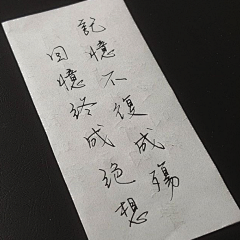 記憶不復成殤
回憶終成絕想